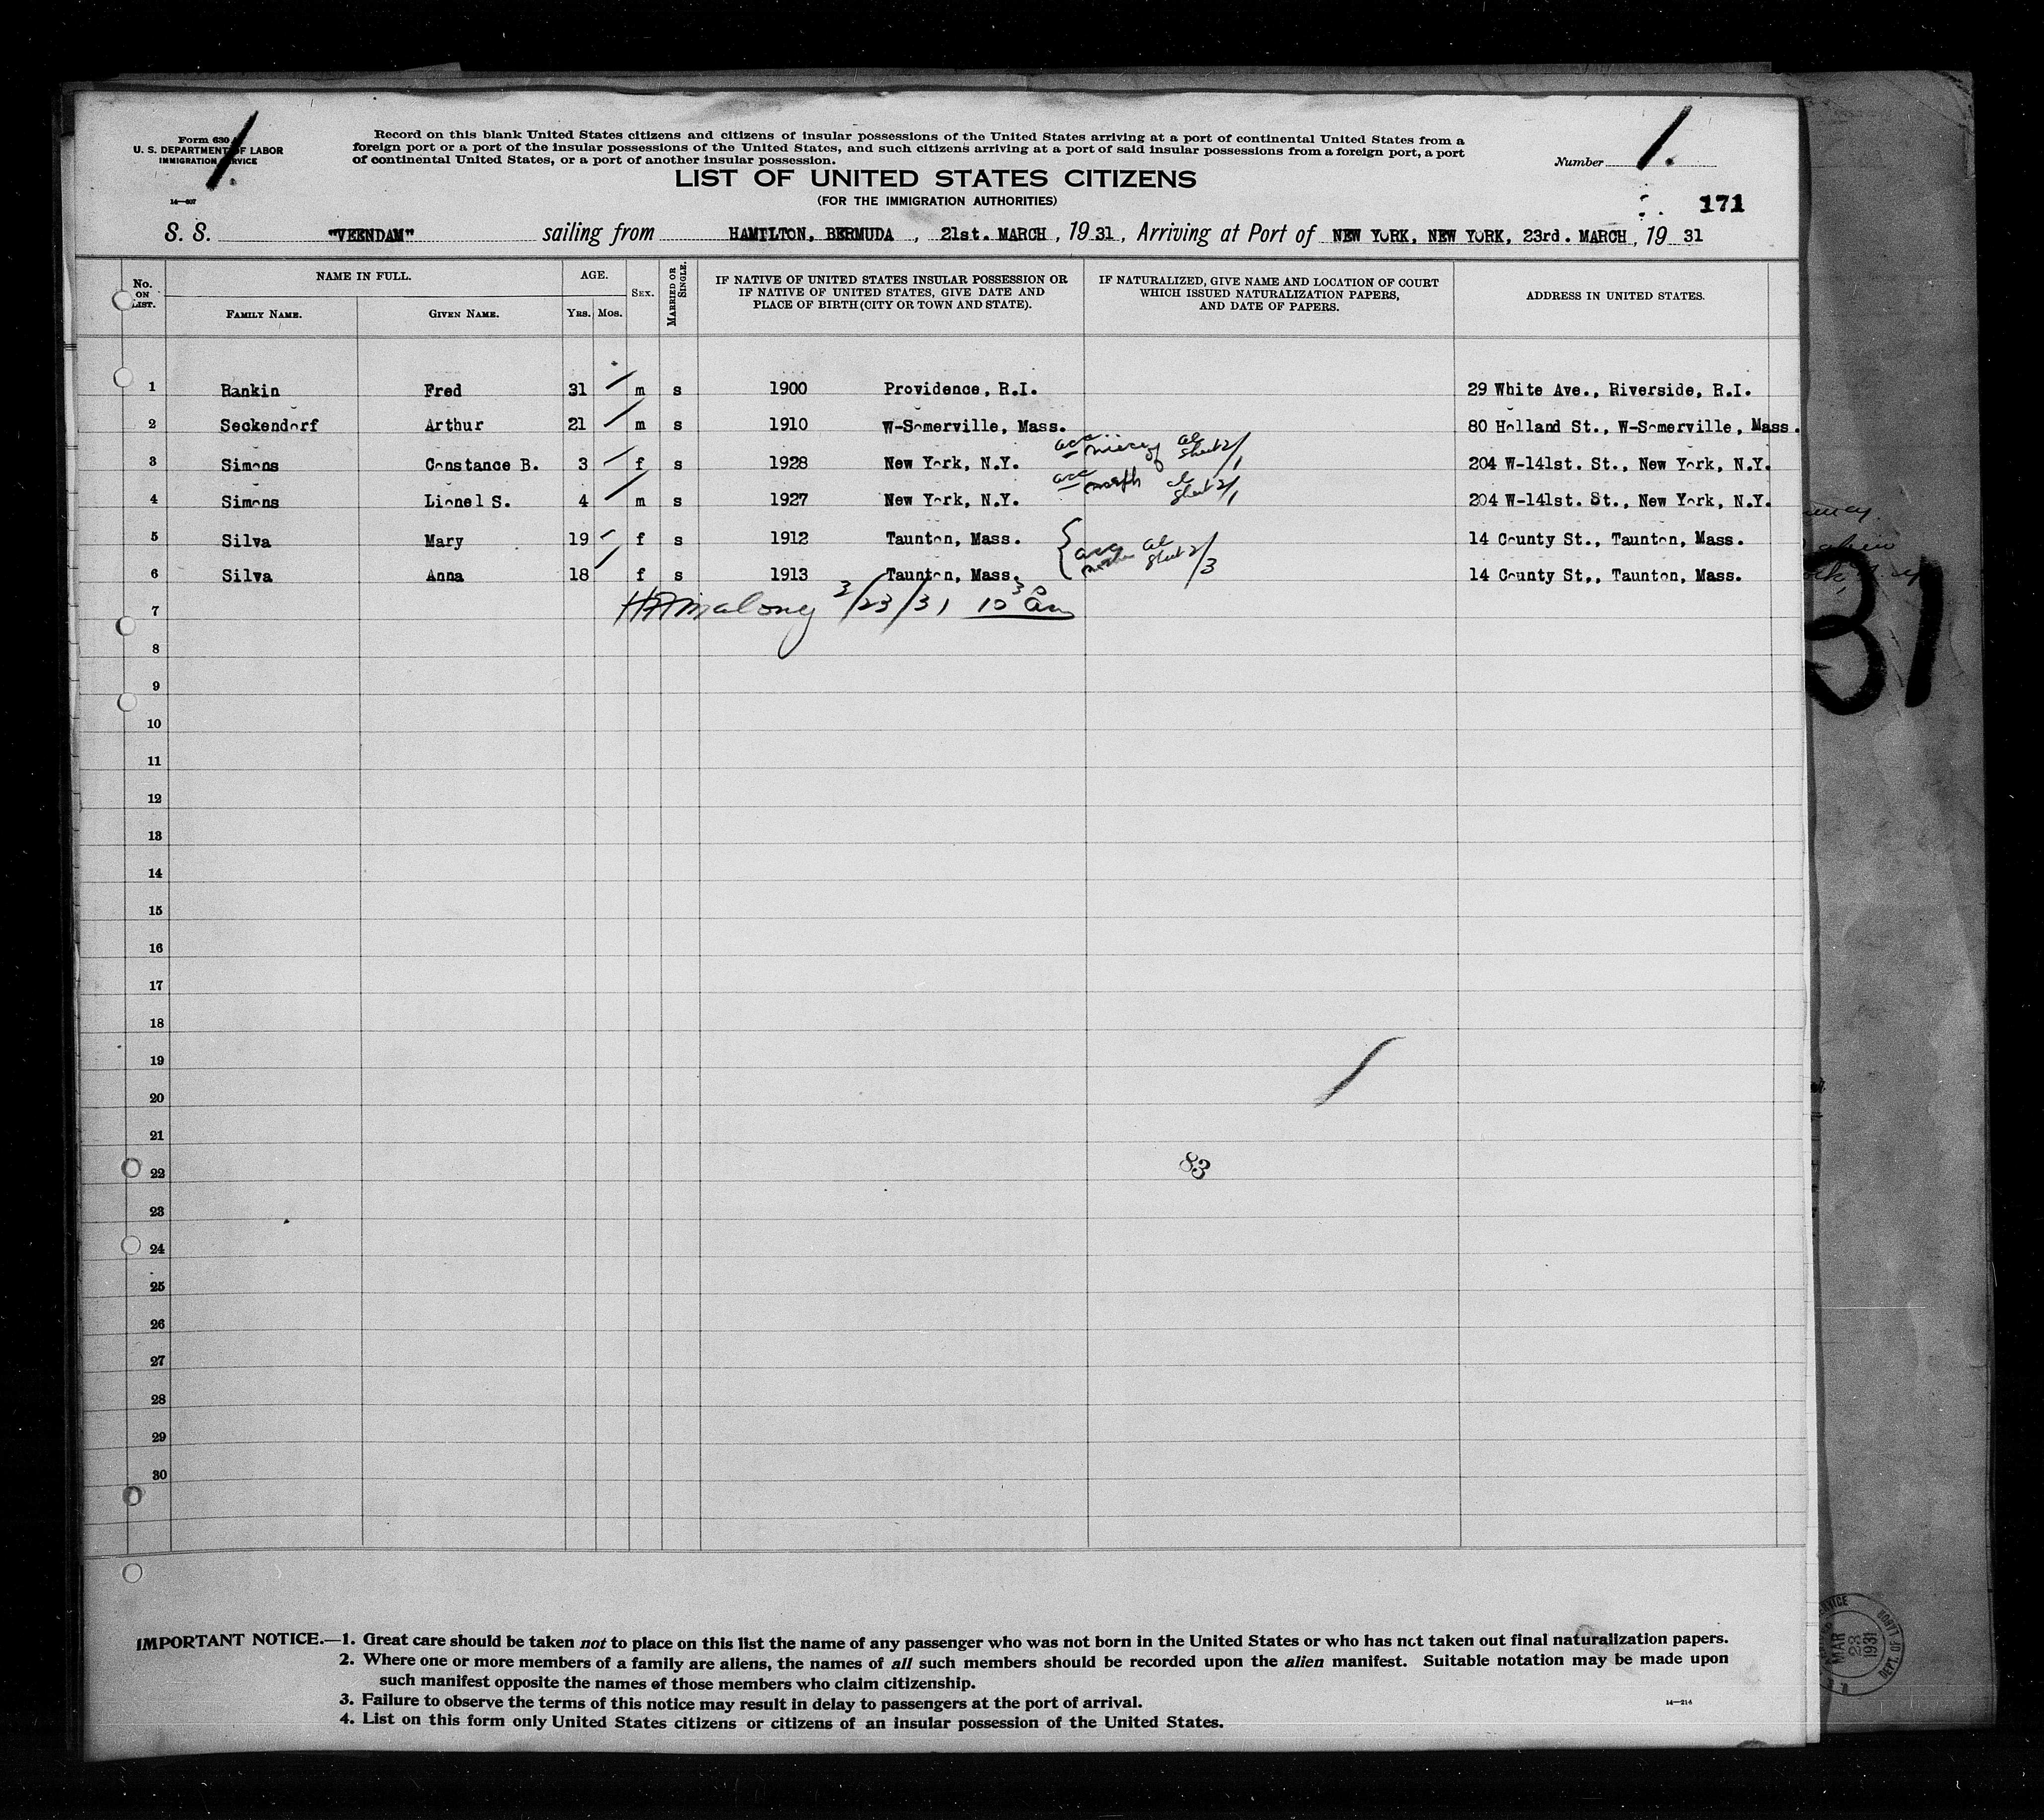 Form 630
U. S. DEPARTMENT OF LABOR
IMMIGRATION SERVICE
14—607
Record on this blank United States citizens and citizens of insular possessions of the United States arriving at a port of continental United States from a
foreign port or a port of the insular possessions of the United States, and such citizens arriving at a port of said insular possessions from a foreign port, a port
of continental United States, or a port of another insular possession.
Number 1.
LIST OF UNITED STATES CITIZENS
(FOR THE IMMIGRATION AUTHORITIES)
171
S. S. "VEENDAM" sailing from HAMILTON, BERMUDA, 21st. MARCH, 1931, Arriving at Port of NEW YORK, NEW YORK, 23rd. MARCH, 1931
No. ON LIST. NAME IN FULL. AGE. SEX. MARRIED OR SINGLE. IF NATIVE OF UNITED STATES INSULAR POSSESSION OR IF NATIVE OF UNITED STATES, GIVE DATE AND PLACE OF BIRTH (CITY OR TOWN AND STATE). IF NATURALIZED, GIVE NAME AND LOCATION OF COURT WHICH ISSUED NATURALIZATION PAPERS, AND DATE OF PAPERS. ADDRESS IN UNITED STATES.
FAMILY NAME. GIVEN NAME. YRS. MOS.
1 Rankin Fred 31 m s 1900 Providence, R.I. 29 White Ave., Riverside, R.I.
2 Seckendorf Arthur 21 m s 1910 W-Somerville, Mass. 80 Holland St., W-Somerville, Mass.
3 Simons Constance B. 3 f s 1928 New York, N.Y. acc niece of al sheet 2/1 204 W-141st. St., New York, N.Y.
4 Simons Lionel S. 4 m s 1927 New York, N.Y. acc neph al sheet 2/1 204 W-141st. St., New York, N.Y.
5 Silva Mary 19 f s 1912 Taunton, Mass. 14 County St., Taunton, Mass.
acc mother al sheet 2/3
6 Silva Anna 18 f s 1913 Taunton, Mass. 14 County St,, Taunton, Mass.
7 Malony 3/23/31 10 30 am
8
9
10
11
12
13
14
15
16
17
18
19
20
21
22
83
23
24
25
26
27
28
29
30
IMPORTANT NOTICE.—1. Great care should be taken not to place on this list the name of any passenger who was not born in the United States or who has not taken out final naturalization papers.
2. Where one or more members of a family are aliens, the names of all such members should be recorded upon the alien manifest. Suitable notation may be made upon
such manifest opposite the names of those members who claim citizenship.
3. Failure to observe the terms of this notice may result in delay to passengers at the port of arrival.
14—214
4. List on this form only United States citizens or citizens of an insular possession of the United States.
31
MAR 23 1931
DEPT. OF LABOR